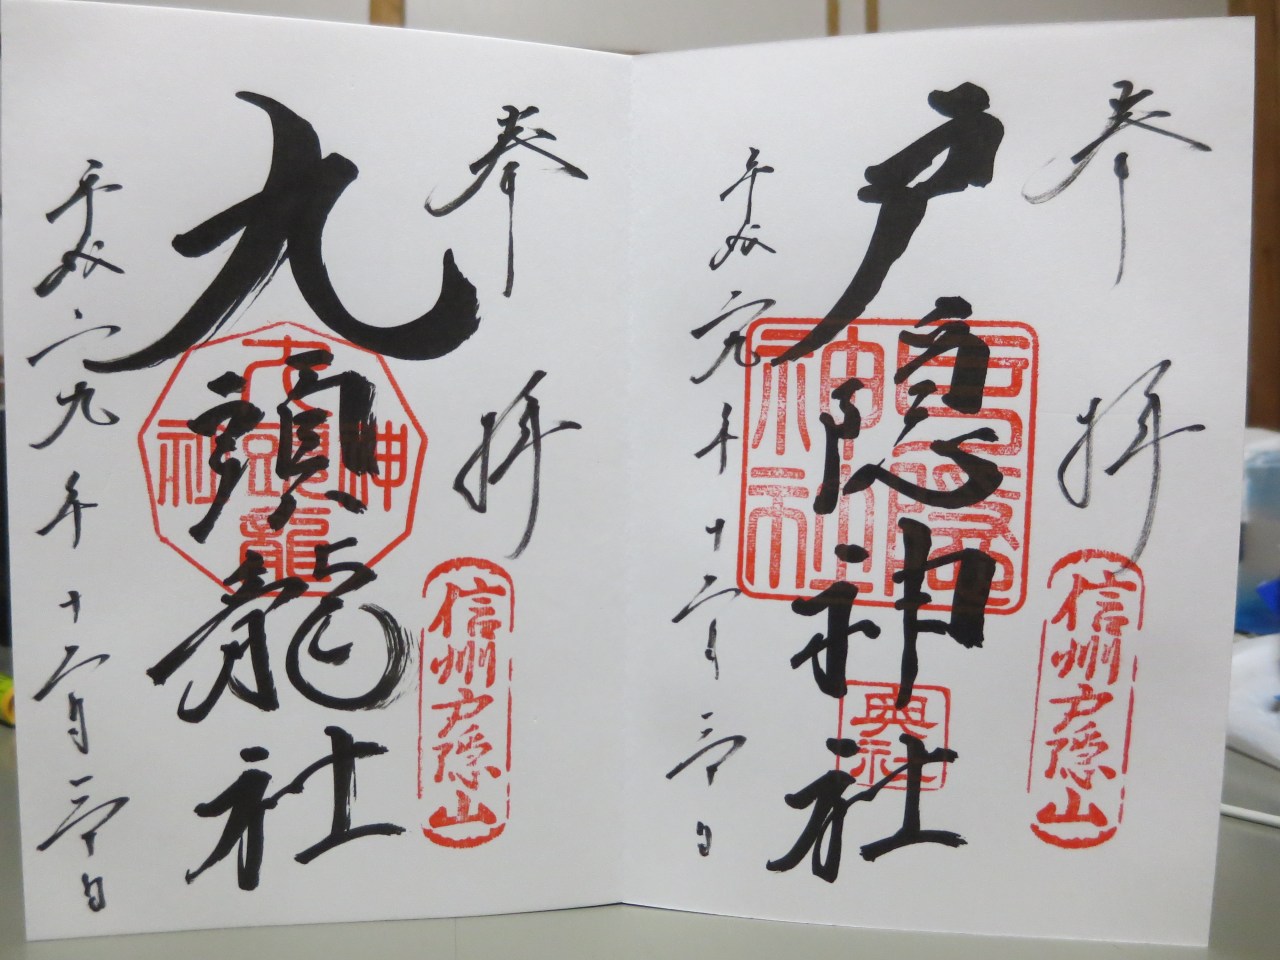 奉拝
信州戸隠山
戸隠神社
戸隠神社
奥社
平成二九年十二月三十日
奉拝
信州戸隠山
九頭龍社
九頭龍神社
平成二九年十二月三十日